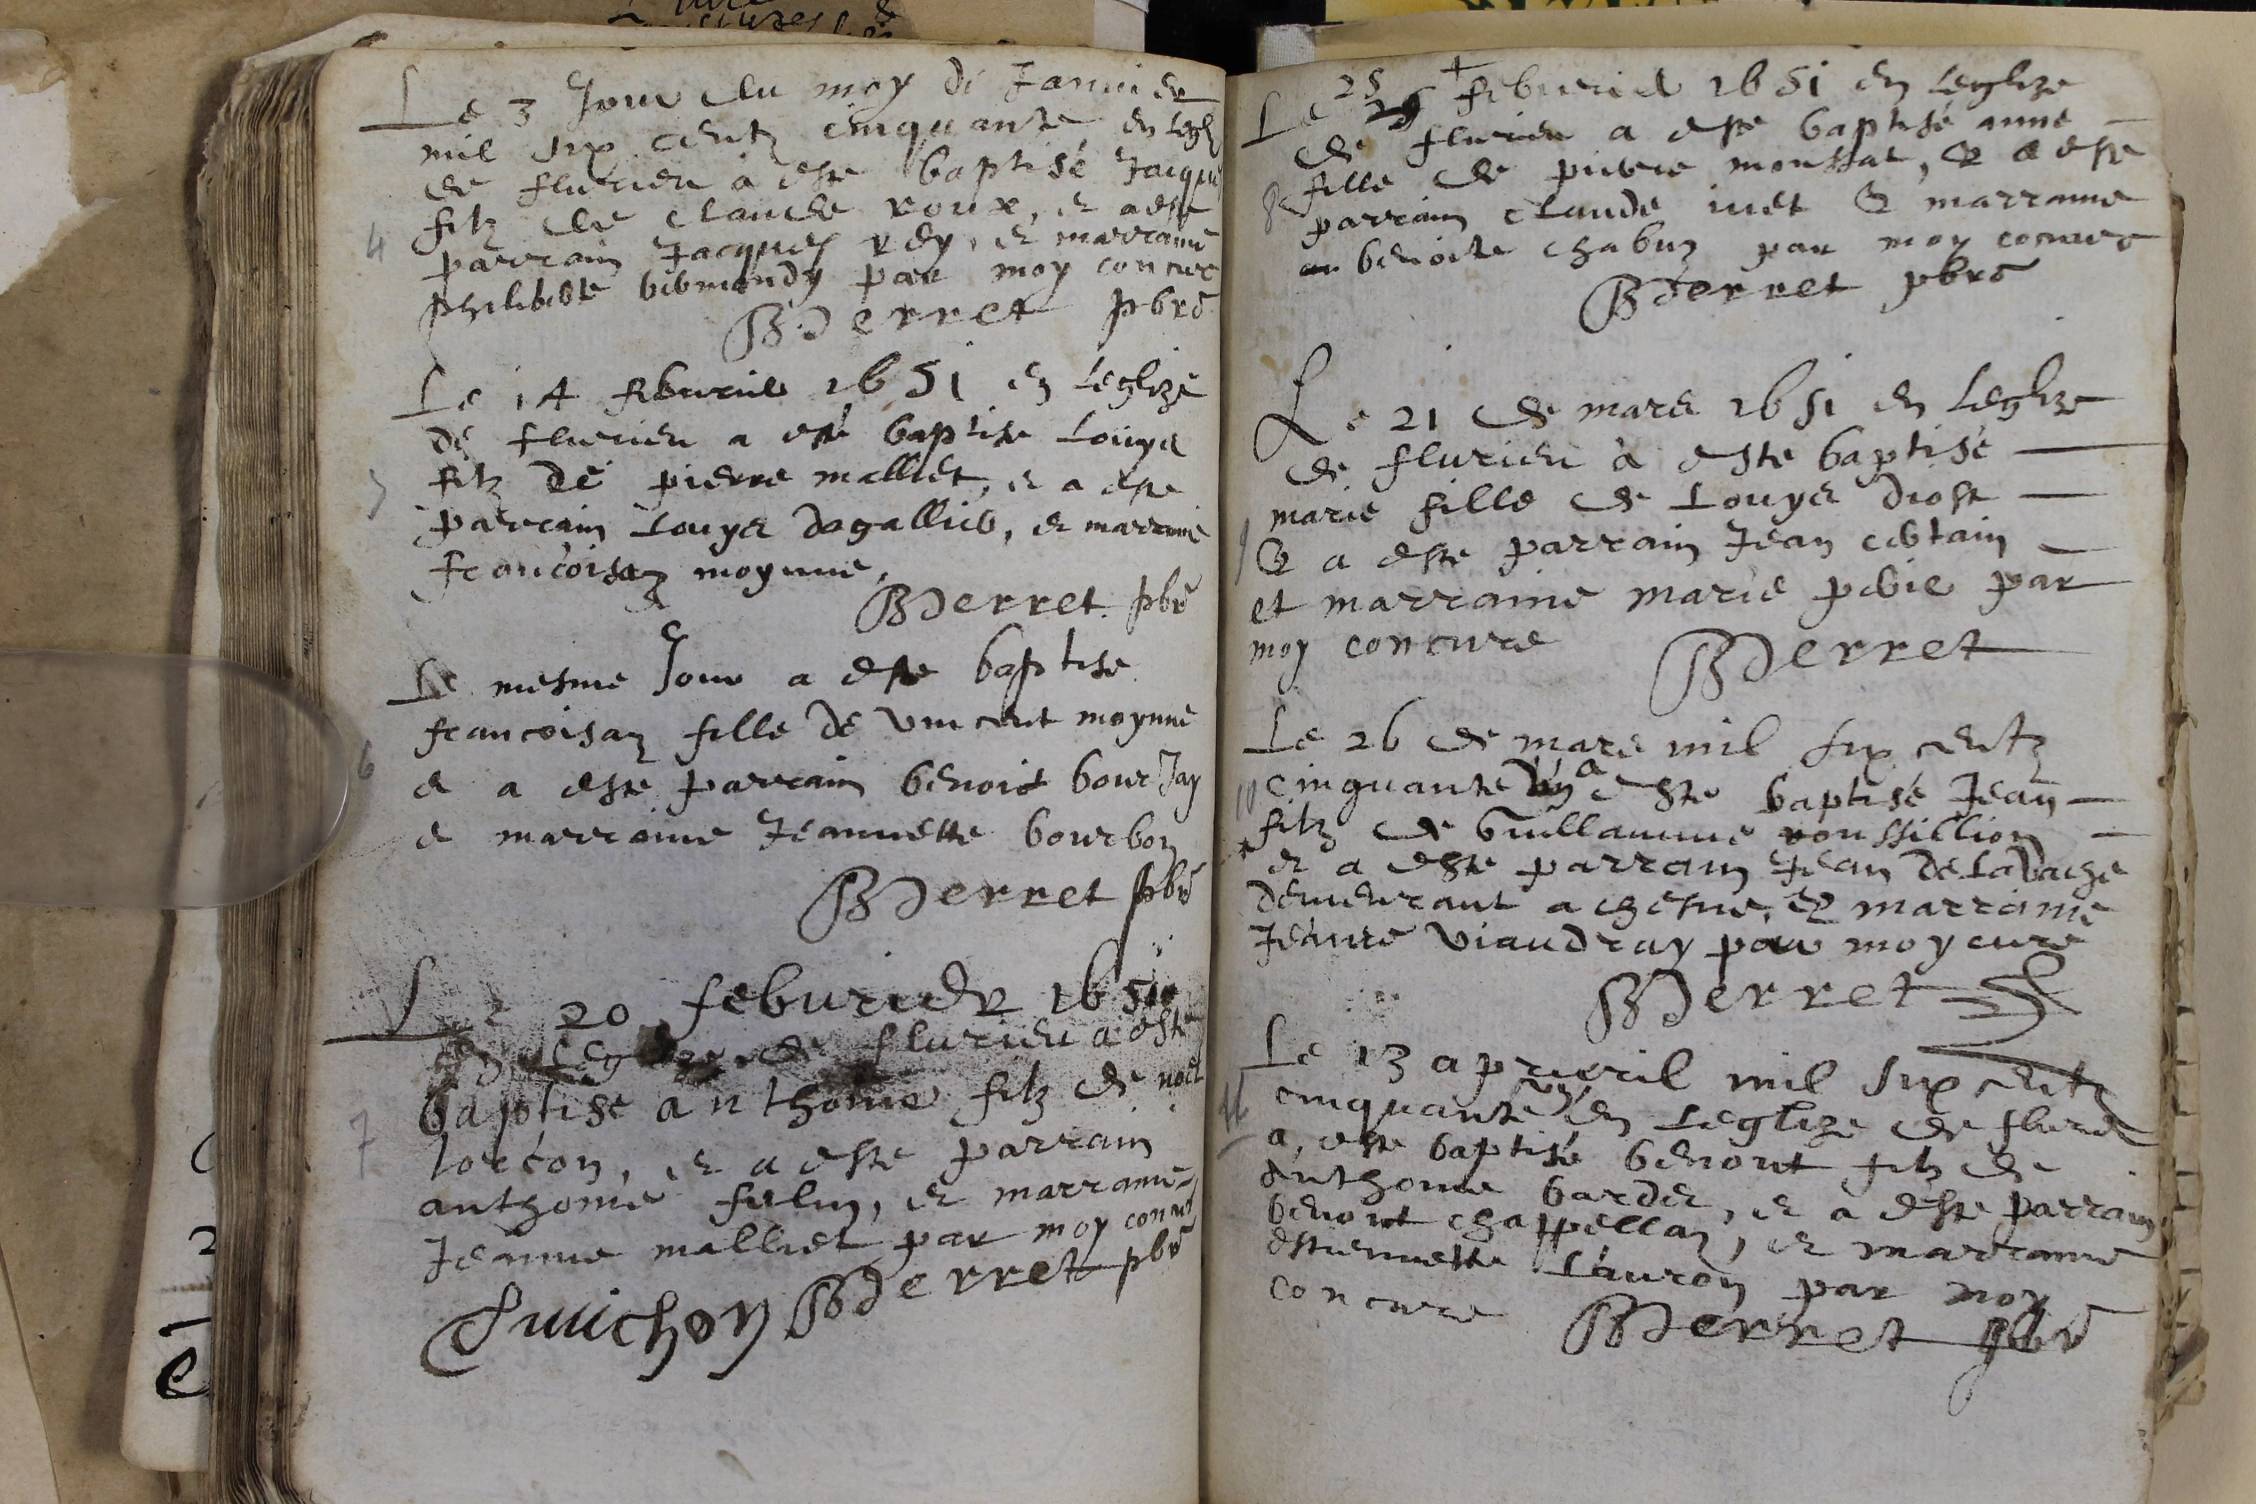 Le 3 Jour du moy de Janvier
mil six centz cinquante en legl
de flurieu a este baptisé Jacque
4 filz de claude roux, et a este
parrain Jacques rey, et marraine
philiberte par moy concure
BDerret pbre
Le 14 feburier 1651 en leglize
de flurieu a esté baptise Louys
5 filz de pierre malliet, et a este
parrain Louys dagallier, et marraine
francoisaz moynne,
BDerret pbr
Le mesme Jour a este baptise
francoisaz fille de vincent moynne
6 et a este parrain benoict bourJay
et marraine Jeannette bourbon
BDerret pbr
Le 20 feburier 1651
en leglize de flurieu a esté
baptise anthoine filz de noel
7 lorcon, et a este parrain
anthoine, et marraine
Jeanne malliet par moy concure
BDerret pbr
Le 25 feburier 1651 en leglize
de flurieu a este baptisé anne
8 fille de pierre moussat, & a este
parrain claude iuet & marraine
benoite chabuz par moy concure
BDerret pbre
Le 21 de mars 1651 en leglize
de flurieu à este baptisé
marie fille de Louys diost
9 & a este parrain Jean certain
et marraine marie par
moy concure BDerret
Le 26 de mars mil six centz
10 cinquante un a este baptisé Jean
filz de Guillaume roussillion
et a este parrain Jean delavaize
demeurant a chesne, et marraine
Jeanne viaudray par moy cure
BDerret
Le 13 apvril mil six centz
11 cinquante un en Leglize de flurieu
a este baptisé benoit filz de
Anthoine bardet, et a este parrain
benoit chappellaz, et marraine
estiennette Lauron par moy
concure BDerret pbr